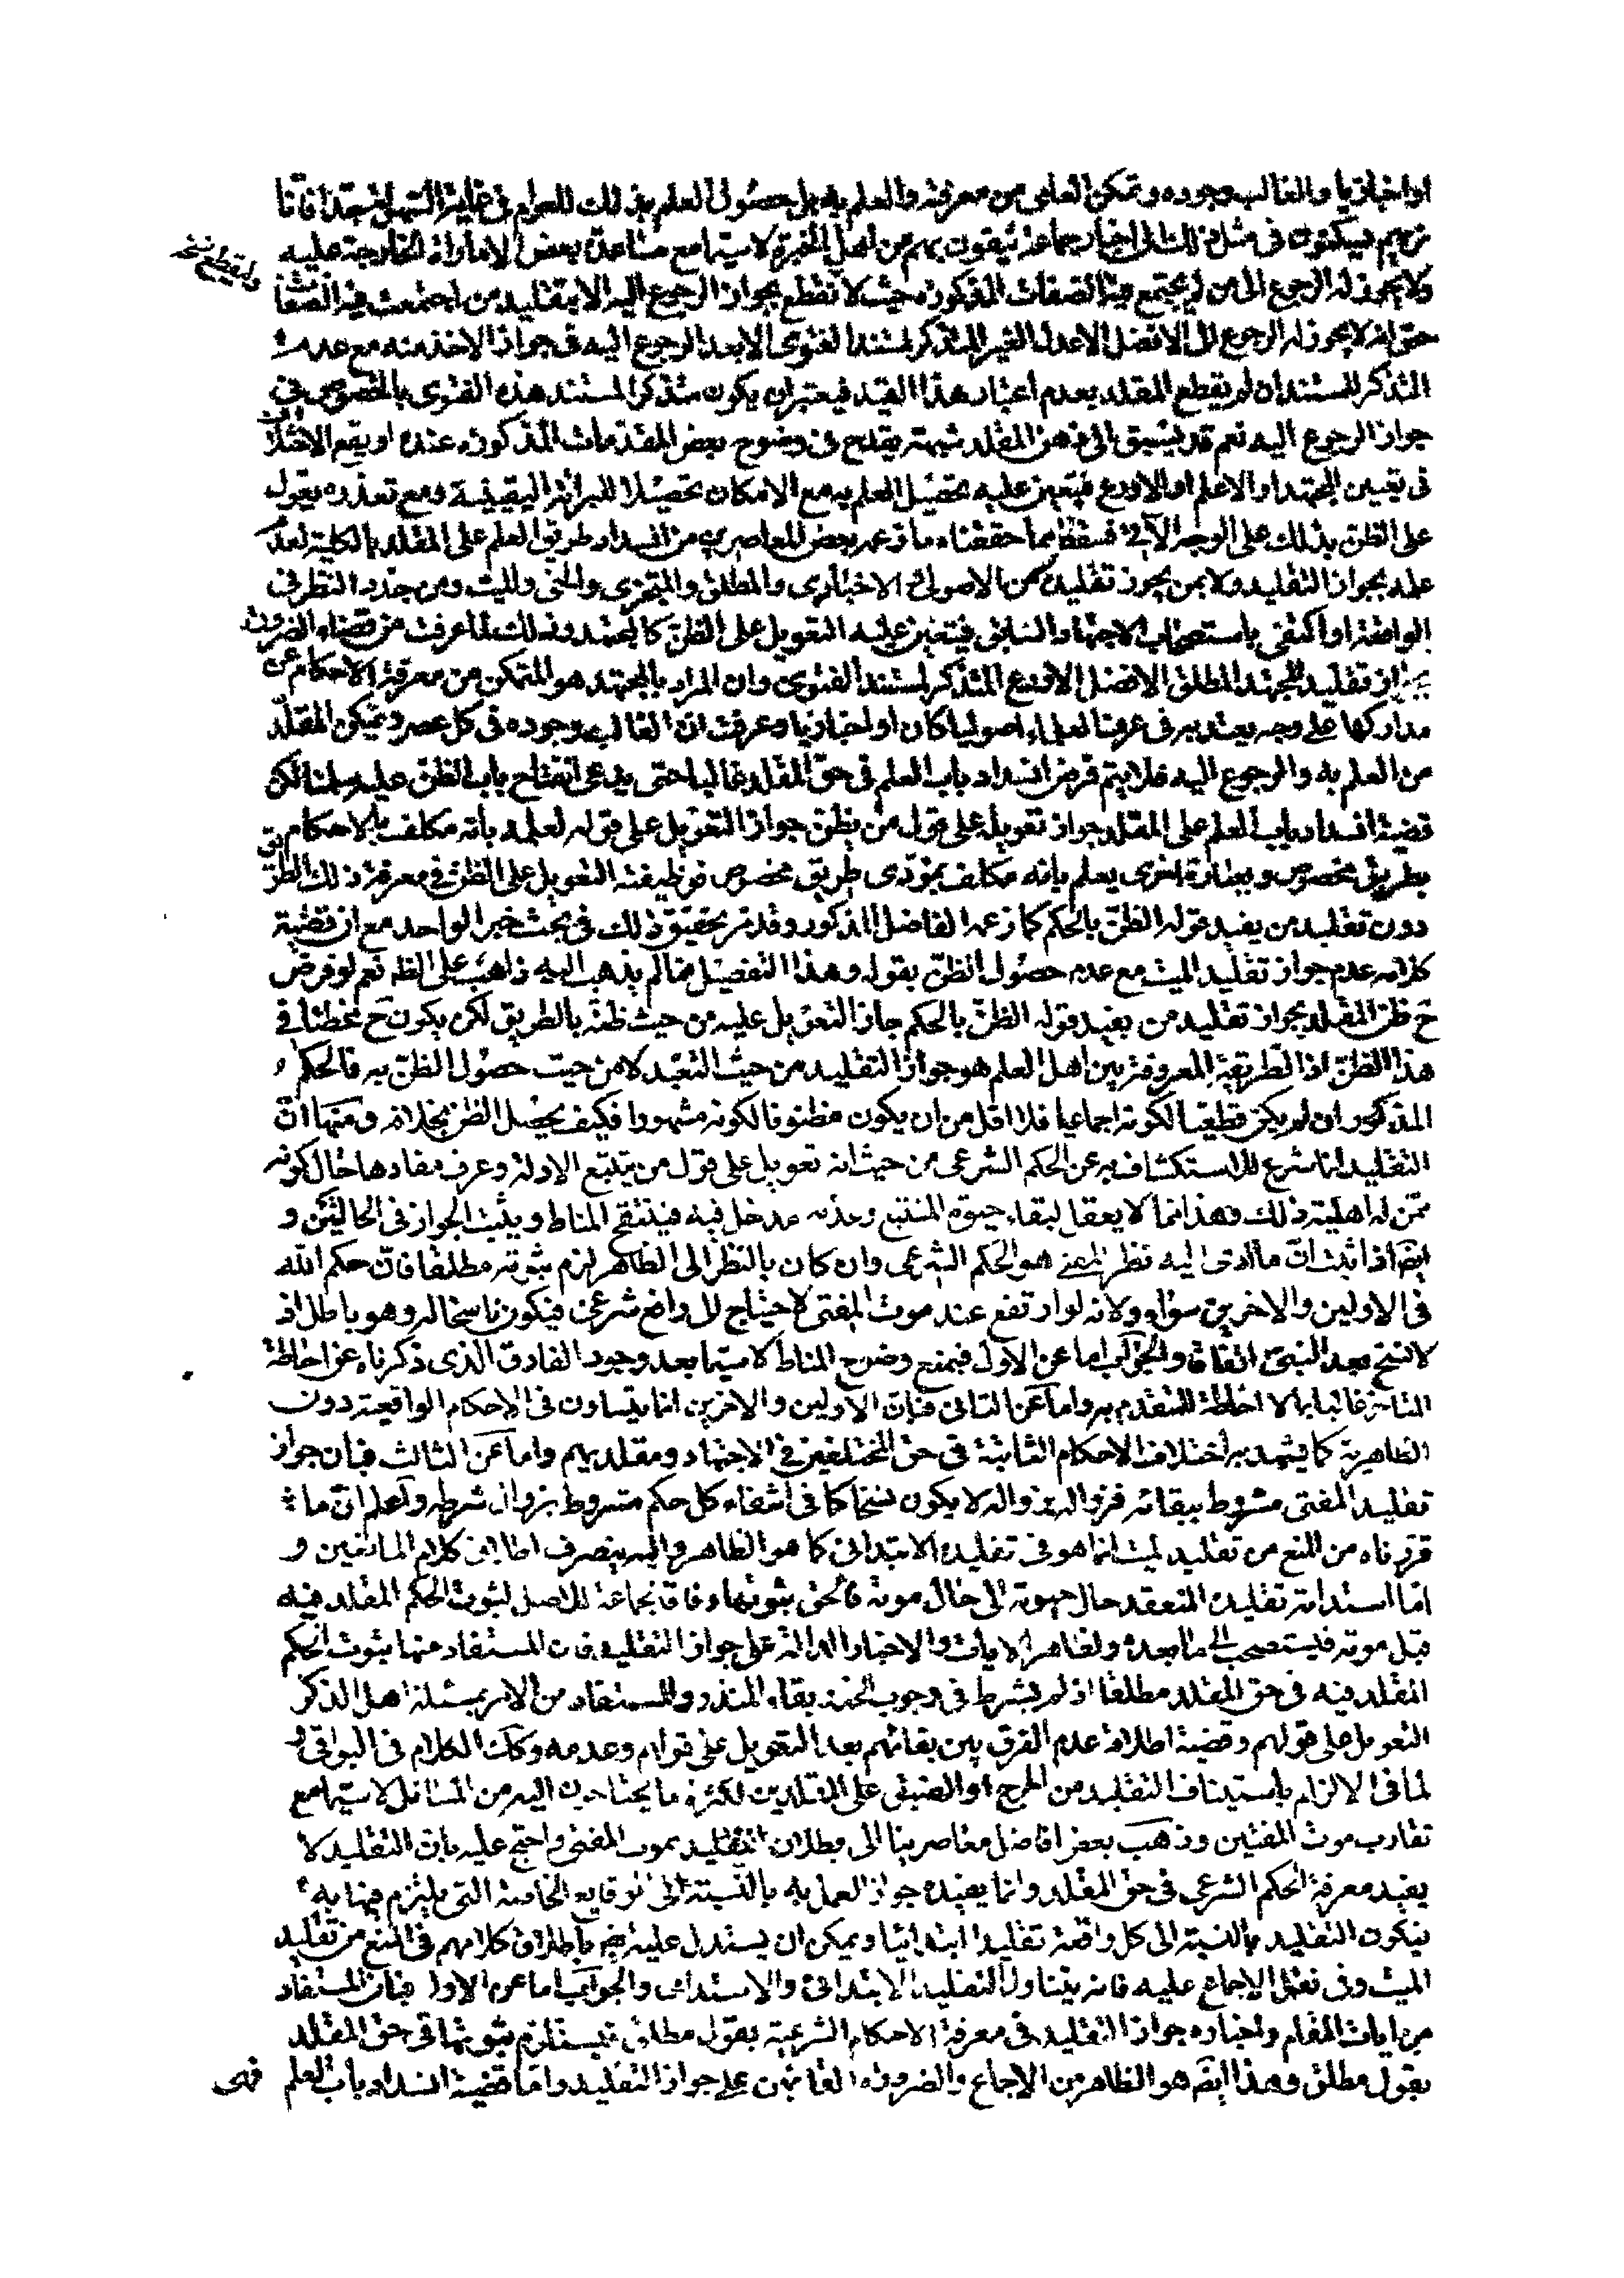 او اخباريا والغالب وجوده وتمكن العامي من معرفته والعلم به بل حصول العلم بذلك للعوام في غاية السهولة جدا فانا
نريهم يسكنون في مثل ذلك الى اخبار جماعة يثقون بهم من اهل الخبرة لا سيما مع مساعدة بعض الامارات الخارجة عليه
ولا يجوز له الرجوع الى من لم يجتمع فيه الصفات المذكورة حيث لا نقطع بجواز الرجوع اليه الا بتقليد من اجتمعت فيه الصفات
حتى انه لا يجوز له الرجوع الى الافضل الاعدل الغير المتذكر لمستند الفتوى الا بعد الرجوع اليه في جواز الاخذ منه مع عدم
التذكر للمستند ان لم يقطع المقلد بعدم اعتبار هذا القيد فيعتبر ان يكون متذكرا لمستند هذه الفتوى بالخصوص في
جواز الرجوع اليه نعم قد يسبق الى ذهن المقلد شبهة يقدح في وضوح بعض المقدمات المذكورة عنده او يقع الاختلاف
في تعيين المجتهد او الاعلم او الاورع فيتعين عليه تحصيل العلم به مع الامكان تحصيلا للبرائة اليقينية ومع تعذره يعول
على الظن بذلك على الوجه الآتي فسقط بما حققناه ما زعمه بعض المعاصرين من انسداد طريق العلم على المقلد بالكلية لعدم
علمه بجواز التقليد ولا بمن يجوز تقليده من الاصولي والاخباري والمطلق والمتجزي والحي والميت ومن جدد النظر في
الواقعة او اكتفى باستصحاب الاجتهاد السابق فيتعين عليه التعويل على الظن كالمجتهد وذلك لما عرفت من قضاء الضرورة
بجواز تقليد المجتهد المطلق الافضل الاورع المتذكر لمستند الفتوى وان المراد بالمجتهد هو المتمكن من معرفة الاحكام عن
مداركها على وجه يعتد به في عرف العلماء اصوليا كان او اخباريا وعرفت ان الغالب وجوده في كل عصر وتمكن المقلد
من العلم به والرجوع اليه فلا يتم فرض انسداد باب العلم في حق المقلد غالبا حتى يدعى انفتاح باب الظن عليه سلمنا لكن
قضية انسداد باب العلم على المقلد جواز تعويله على قول من يظن جواز التعويل على قوله لعلمه بانه مكلف بالاحكام
بطريق مخصوص وبعبارة اخرى يعلم بانه مكلف بمؤدى طريق مخصوص فوظيفته التعويل على الظن في معرفة ذلك الطريق
دون تقليد من يفيد قوله الظن بالحكم كما زعمه الفاضل المذكور وقد مر تحقيق ذلك في بحث خبر الواحد مع ان قضية
كلامه عدم جواز تقليد الميت مع عدم حصول الظن بقوله وهذا التفصيل مما لم يذهب اليه ذاهب على الظ نعم لو فرض
ح ظن المقلد بجواز تقليد من يفيد قوله الظن بالحكم جاز التعويل عليه من حيث ظنه بالطريق لكن يكون ح مخطئا في
هذا الظن اذ الطريقة المعروفة بين اهل العلم هو جواز التقليد من حيث التعبد لا من حيث حصول الظن به فالحكم
المذكور ان لم يكن قطعيا لكونه اجماعيا فلا اقل من ان يكون مظنونا لكونه مشهورا فكيف يحصل الظن بخلافه ومنها ان
التقليد انما شرع للاستكشاف به عن الحكم الشرعي من حيث انه تعويل على قول من تتبع الادلة وعرف مفادها حال كونه
ممن له اهلية ذلك وهذا مما لا يعقل لبقاء حيوة المتتبع وعدمه مدخل فيه فيتنقح المناط ويثبت الجواز في الحالتين و
ايضا اذا ثبت ان ما ادى اليه نظر المفتي هو الحكم الشرعي وان كان بالنظر الى الظاهر لزم ثبوته مطلقا فان حكم الله
في الاولين والاخرين سواء ولانه لو ارتفع عند موت المفتي لاحتاج الى رافع شرعي فيكون ناسخا له وهو باطل اذ
لا نسخ بعد النبي اتفاقا والجواب اما عن الاول فبمنع وضوح المناط لا سيما بعد وجود الفارق الذي ذكرناه عن احاطة
المتاخر غالبا بما لا احاطة للمتقدم به واما عن الثاني فبان الاولين والاخرين انما يتساون في الاحكام الواقعية دون
الظاهرية كما يشهد به اختلاف الاحكام الثابتة في حق المختلفين في الاجتهاد ومقلديهم واما عن الثالث فبان جواز
تقليد المفتي مشروط ببقائه فزواله بزواله لا يكون نسخا كما في انتفاء كل حكم مشروط بزوال شرطه واعلم ان ما
قررناه من المنع من تقليد الميت انما هو في تقليده الابتدائي كما هو الظاهر واليه ينصرف اطلاق كلام المانعين و
اما استدامة تقليده المنعقد حال حيوته الى حال موته فالحق ثبوتها وفاقا لجماعة للاصل لثبوت الحكم المقلد فيه
قبل موته فيستصحب الى ما بعده ولظاهر الايات والاخبار الدالة على جواز التقليد فان المستفاد منها ثبوت الحكم
المقلد فيه في حق المقلد مطلقا اذ لم يشترط في وجوب الحذر بقاء المنذر والمستفاد من الامر بمسئلة اهل الذكر
التعويل على قولهم وقضية اطلاقه عدم الفرق بين بقائهم بعد التعويل على قولهم وعدمه وكك الكلام في البواقي و
لما في الالزام باستيناف التقليد من الحرج او الضيق على المقلدين لكثرة ما يحتاجون اليه من المسائل لا سيما مع
تقارب موت المفتين وذهب بعض افاضل معاصرينا الى بطلان التقليد بموت المفتي واحتج عليه بان التقليد لا
يفيد معرفة الحكم الشرعي في حق المقلد وانما يفيده جواز العمل به بالنسبة الى الوقايع الخاصة التي يلتزم فيها به
فيكون التقليد بالنسبة الى كل واقعة تقليدا ابتدائيا ويمكن ان يستدل عليه ايضا باطلاق كلامهم في المنع من تقليد
الميت وفي نقل الاجماع عليه فانه يتناول التقليد الابتدائي والاستدامي والجواب اما عن الاول فبان المستفاد
من ايات المقام واخباره جواز التقليد في معرفة الاحكام الشرعية بقول مطلق فيستلزم ثبوتها في حق المقلد
بقول مطلق وهذا ايضا هو الظاهر من الاجماع والضرورة القائمين على جواز التقليد واما قضية انسداد باب العلم
فهى